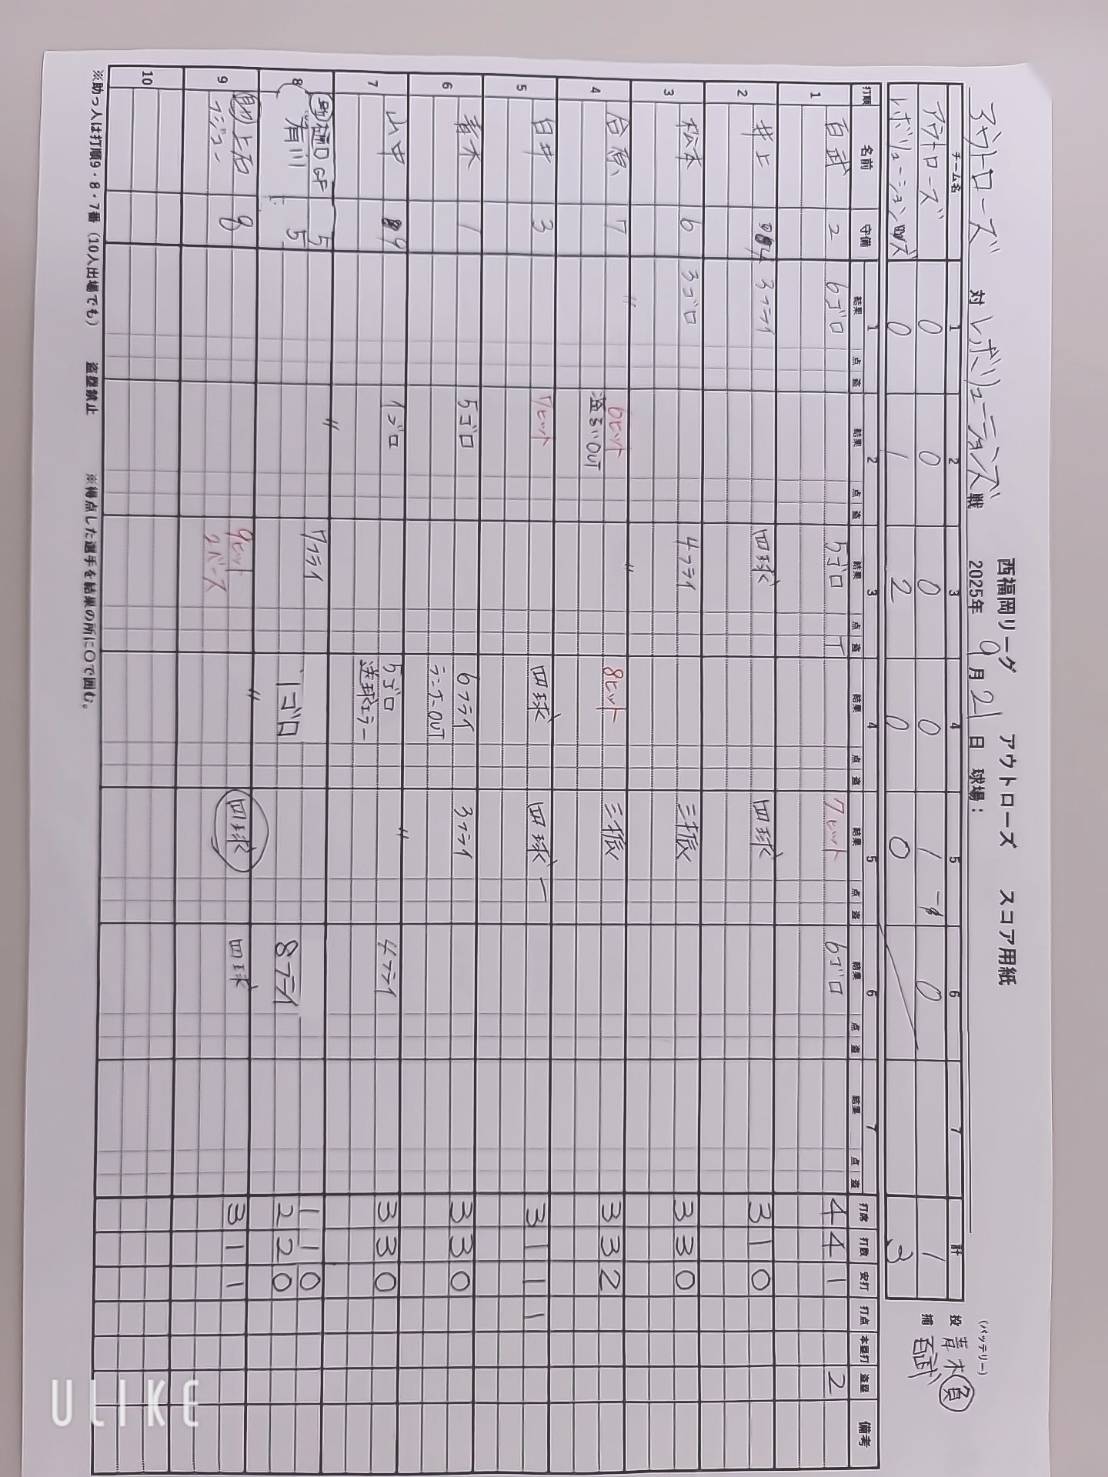 西福岡リーグ アウトローズ スコア用紙
アウトローズ 対 レボリューションズ 戦 2025年 9月 21日 球場：
チーム名 1 2 3 4 5 6 7 計
アウトローズ 0 0 0 0 1 0 1
レボリューションズ 0 1 2 0 0 3
(バッテリー)
投 青木 負
捕 百武
打順 名前 守備 1 2 3 4 5 6 7 打席 打数 安打 打点 本塁打 盗塁 備考
結果 点 盗 結果 点 盗 結果 点 盗 結果 点 盗 結果 点 盗 結果 点 盗 結果 点 盗
1 百武 2 6ゴロ 5ゴロ 7ヒット 6ゴロ 4 4 1 2
2 井上 4 3フライ 四球 四球 3 1 0
3 松本 6 3ゴロ 4フライ 三振 3 3 0
4 合原 7 〃 6ヒット 〃 8ヒット 三振 3 3 2
盗るいOUT
5 白井 3 7ヒット 四球 四球 一 3 1 1 1
6 青木 1 5ゴロ 6フライ 3フライ 3 3 0
ランナーOUT
7 山中 9 1ゴロ 5ゴロ 〃 4フライ 3 3 0
送球エラー
8 5 〃 7フライ 1 1 0
有川 5 1ゴロ 8フライ 2 2 0
9 助 上石 8 9ヒット 〃 四球 四球 3 1 1
10
※助っ人は打順9・8・7番（10人出場でも） 盗塁禁止 ※得点した選手を結果の所に○で囲む。
ULIKE